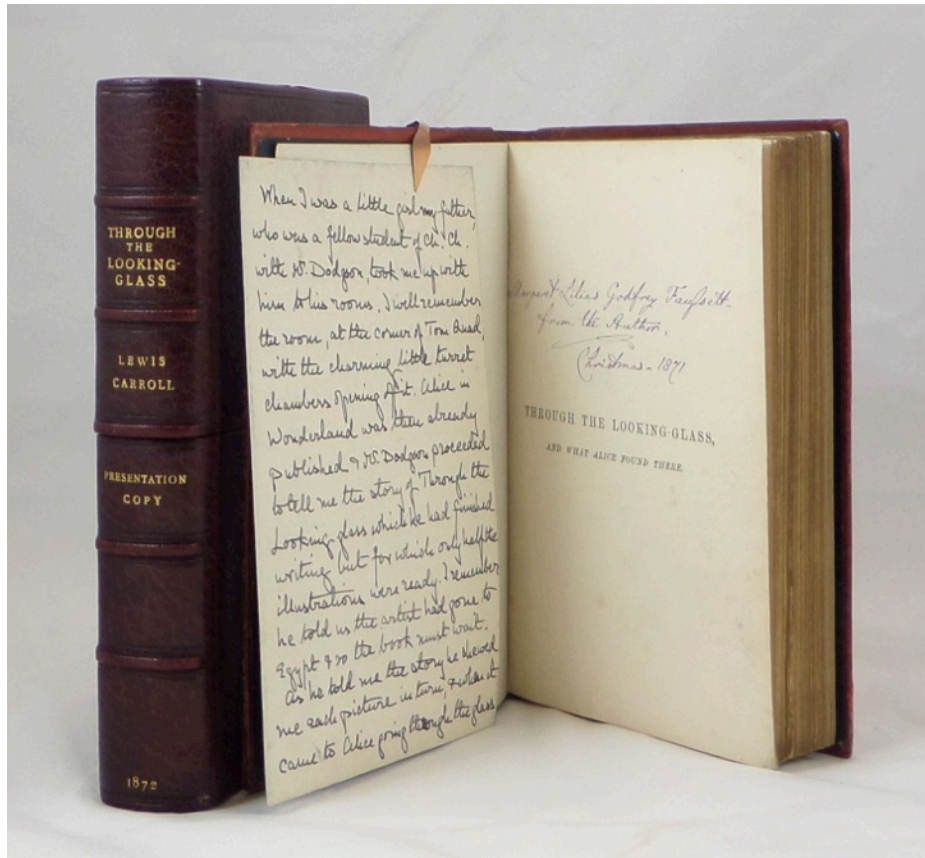 THROUGH
THE
LOOKING-
GLASS
LEWIS
CARROLL
PRESENTATION
COPY
1872
When I was a little girl my father,
who was a fellow student of Ch. Ch.
with Mr. Dodgson, took me up with
him to his rooms. I well remember
the room, at the corner of Tom Quad,
with the charming little turret
chambers opening off it. Alice in
Wonderland was then already
published & Mr. Dodgson proceeded
to tell me the story of Through the
Looking-glass which he had finished
writing but for which only half the
illustrations were ready. I remember
he told us the artist had gone to
Egypt & so the book must wait.
As he told me the story he shewed
me each picture in turn, & when it
came to Alice going through the glass,
Lilias Godfrey Faussett.
from the Author.
Christmas - 1871
THROUGH THE LOOKING-GLASS,
AND WHAT ALICE FOUND THERE.